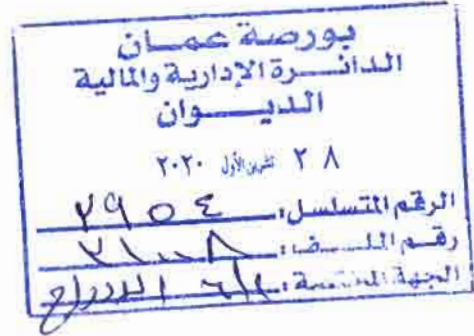 بورصة عمان
الدائرة الإدارية والمالية
الديوان
٢٨ تشرين الأول ٢٠٢٠
الرقم المتسلسل: ٢٩٥٤
رقم الملف: ٣١٠٠٨
الجهة المختصة: الادراج